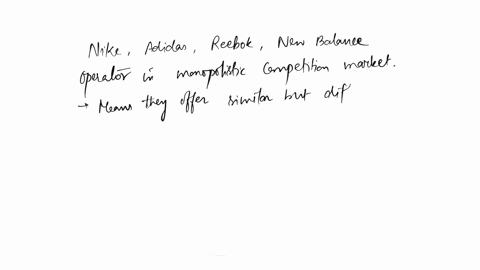 Nike, Adidas, Reebok, New Balance
operator in monopolistic competition market.
→ Means they offer similar but dif